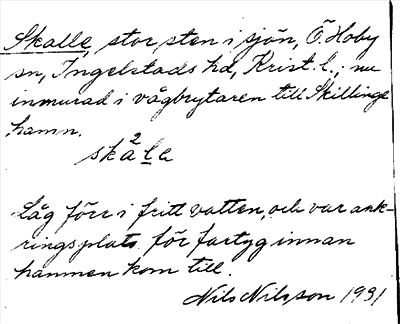 Skalle, stor sten i sjön, Ö. Hoby
sn, Ingelstads hd, Krist. l.; nu
inmurad i vågbrytaren till Skillinge
hamn.
skåla
Låg förr i fritt vatten, och var ank-
ringsplats för fartyg innan
hamnen kom till.
Nils Nilsson 1931